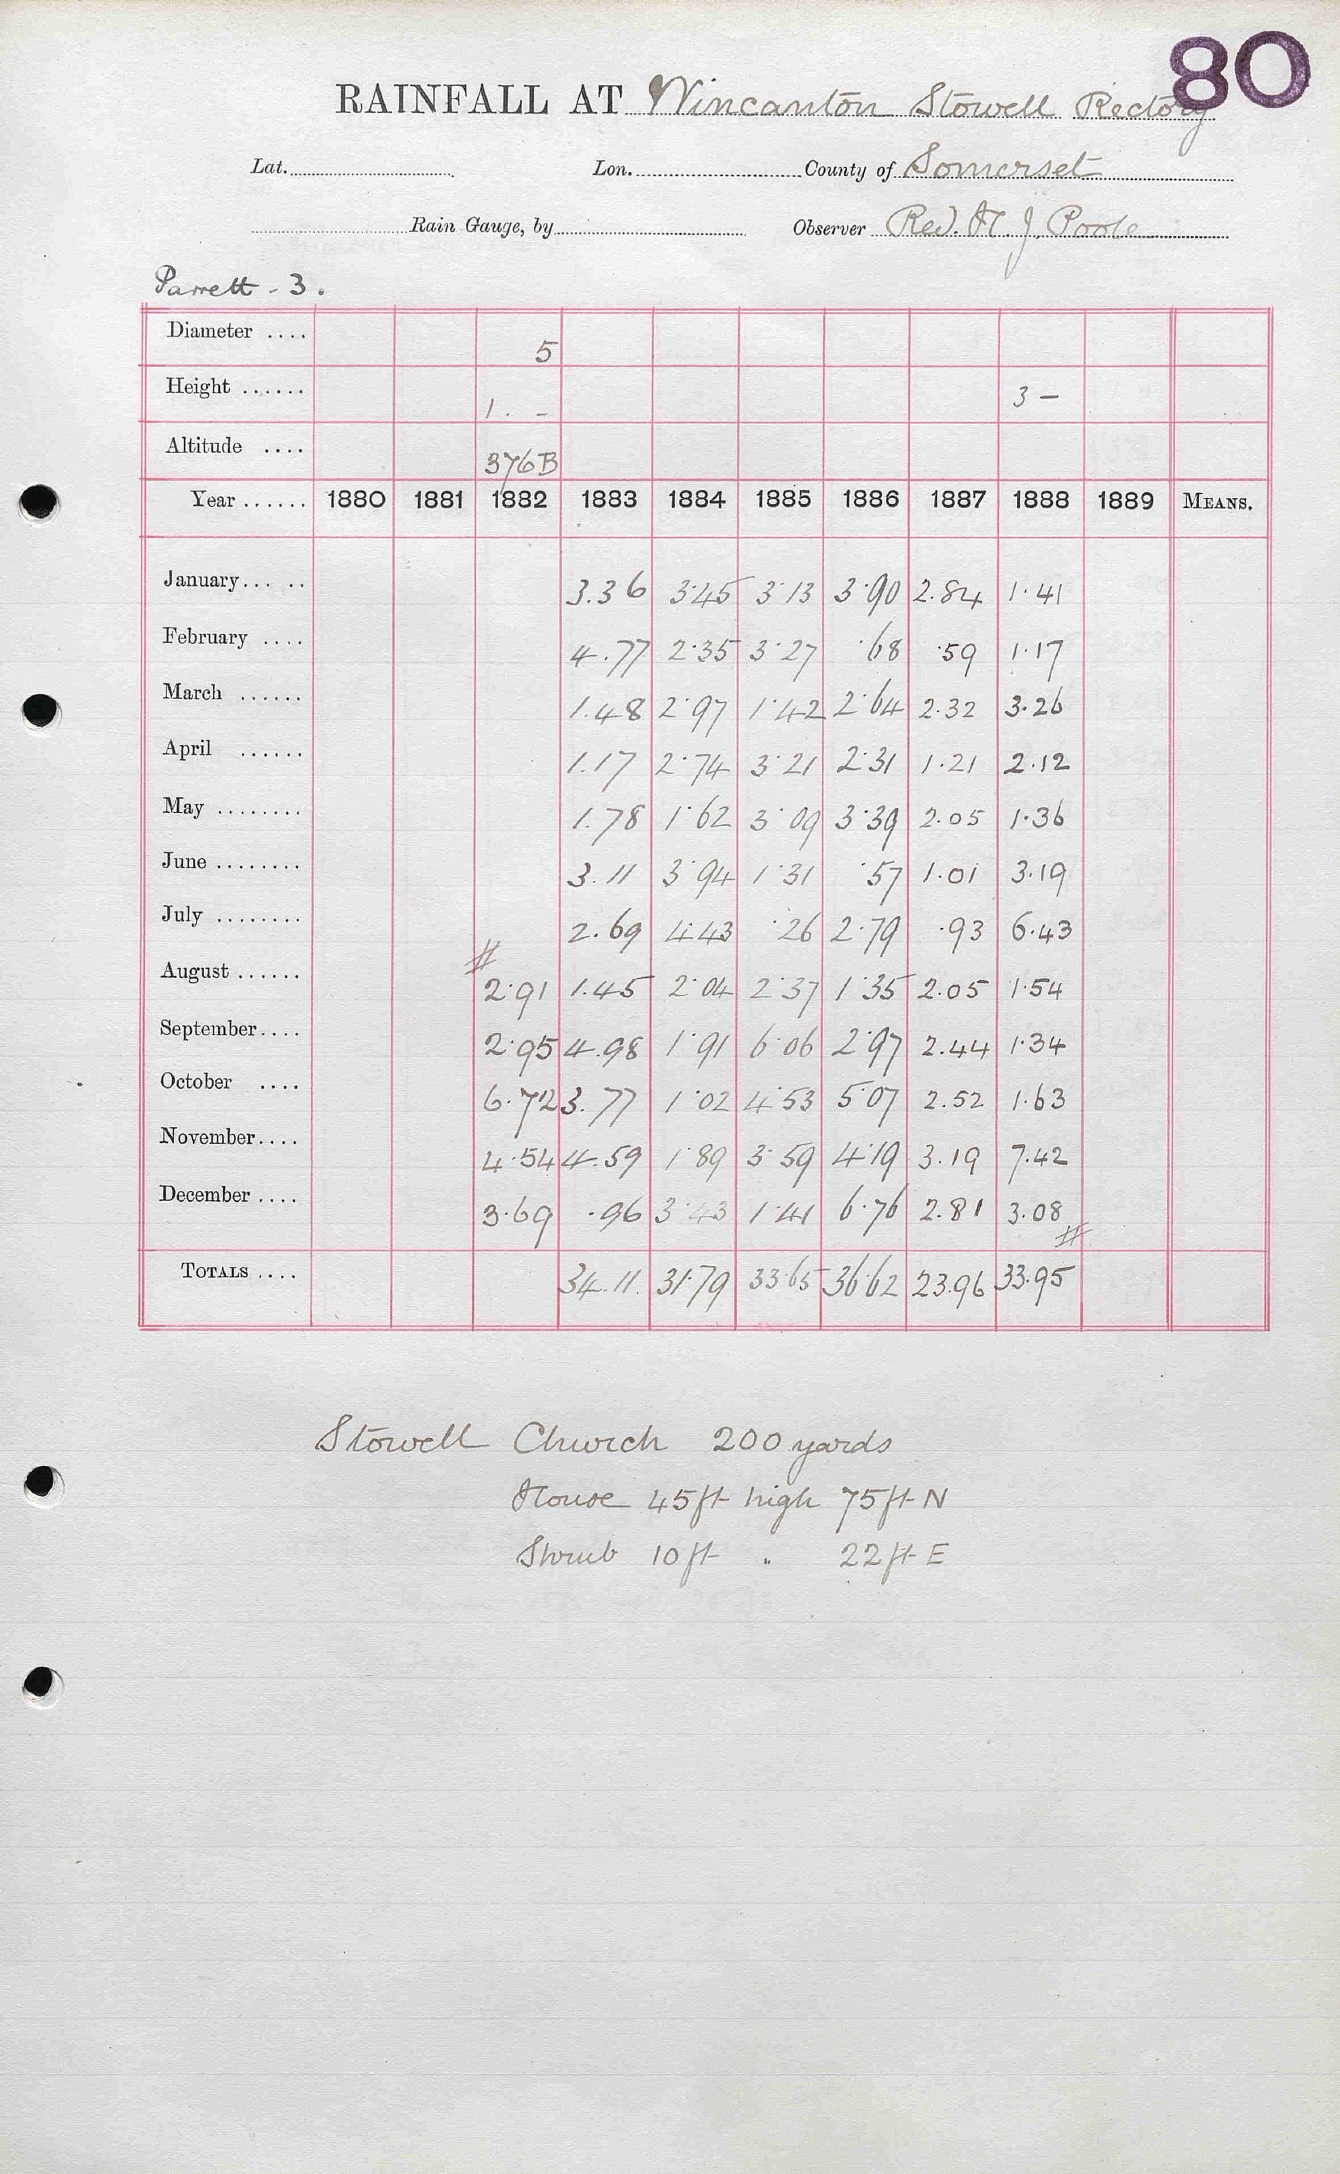 80
RAINFALL AT Wincanton Stowell Rectory
Lat. Lon. County of Somerset
Rain Gauge, by Observer Rev. H. J. Poole
Parrett - 3.
Diameter .... 5
Height ...... 1. - 3 -
Altitude .... 376 B
Year ...... 1880 1881 1882 1883 1884 1885 1886 1887 1888 1889 MEANS.
January... .. 3.36 3.45 3.13 3.90 2.84 1.41
February .... 4.77 2.35 3.27 .68 .59 1.17
March ...... 1.48 2.97 1.42 2.64 2.32 3.26
April ...... 1.17 2.74 3.21 2.31 1.21 2.12
May ........ 1.78 1.62 3.09 3.39 2.05 1.36
June ........ 3.11 3.94 1.31 .57 1.01 3.19
July ........ 2.69 4.43 .26 2.79 .93 6.43
August ...... # 2.91 1.45 2.04 2.37 1.35 2.05 1.54
September.... 2.95 4.98 1.91 6.06 2.97 2.44 1.34
October .... 6.72 3.77 1.02 4.53 5.07 2.52 1.63
November.... 4.54 4.59 1.89 3.59 4.19 3.19 7.42
December .... 3.69 .96 3.43 1.41 6.76 2.81 3.08 #
TOTALS .... 34.11 31.79 33.65 36.62 23.96 33.95
Stowell Church 200 yards
House 45 ft high 75 ft N
Shrub 10 ft " 22 ft E